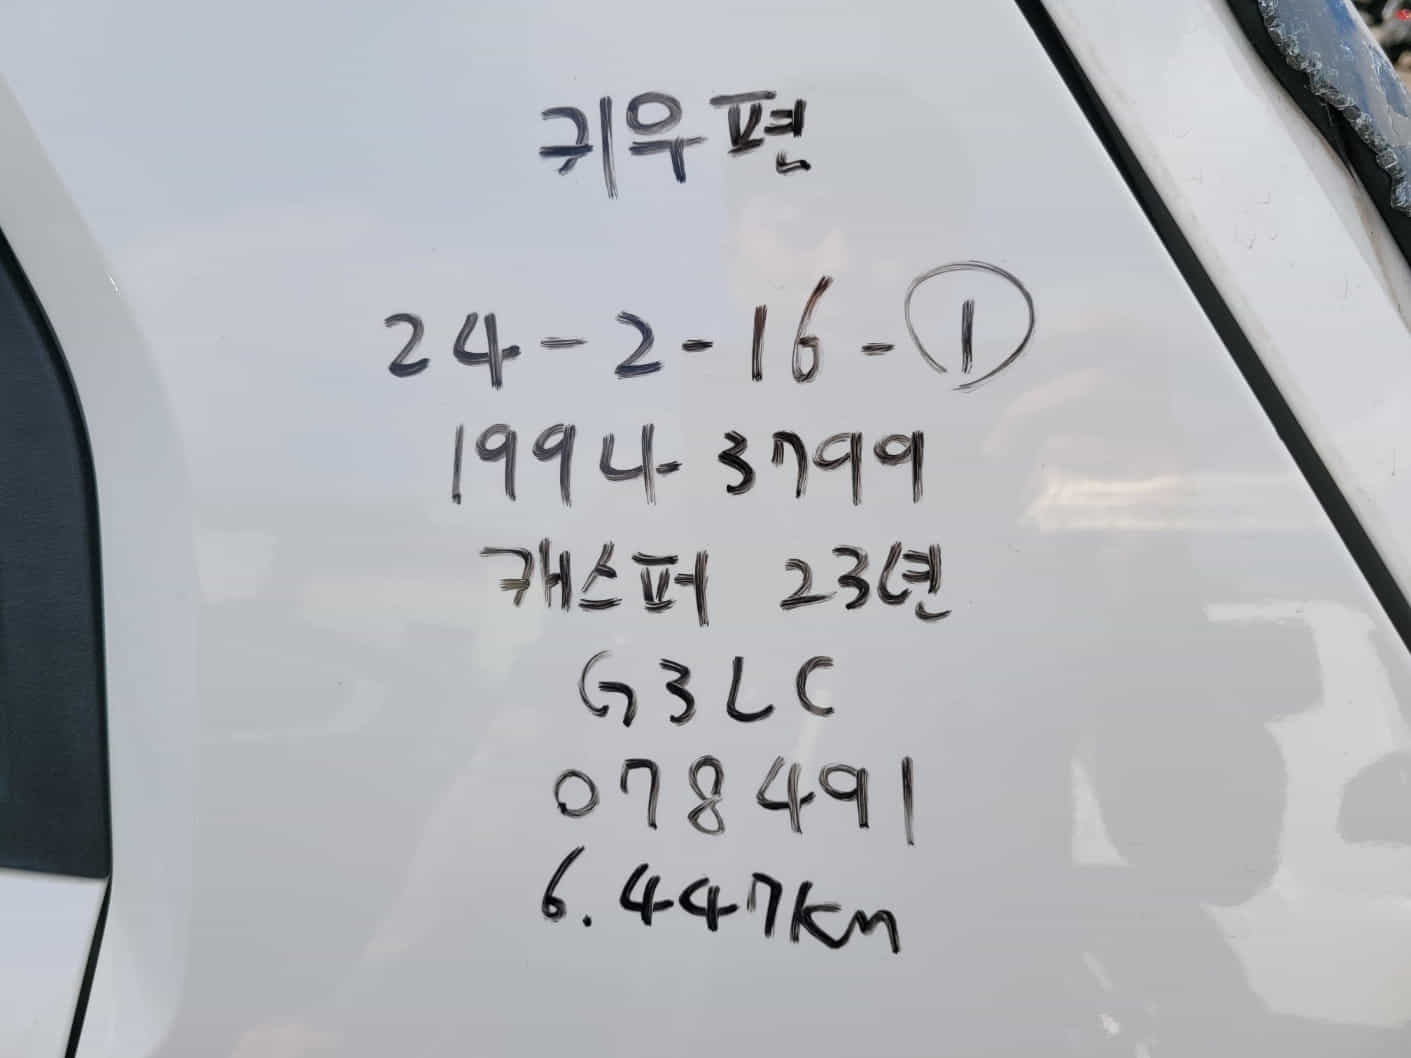 귀우편
24-2-16-①
1994-3799
캐스퍼 23년
G3LC
078491
6.447km